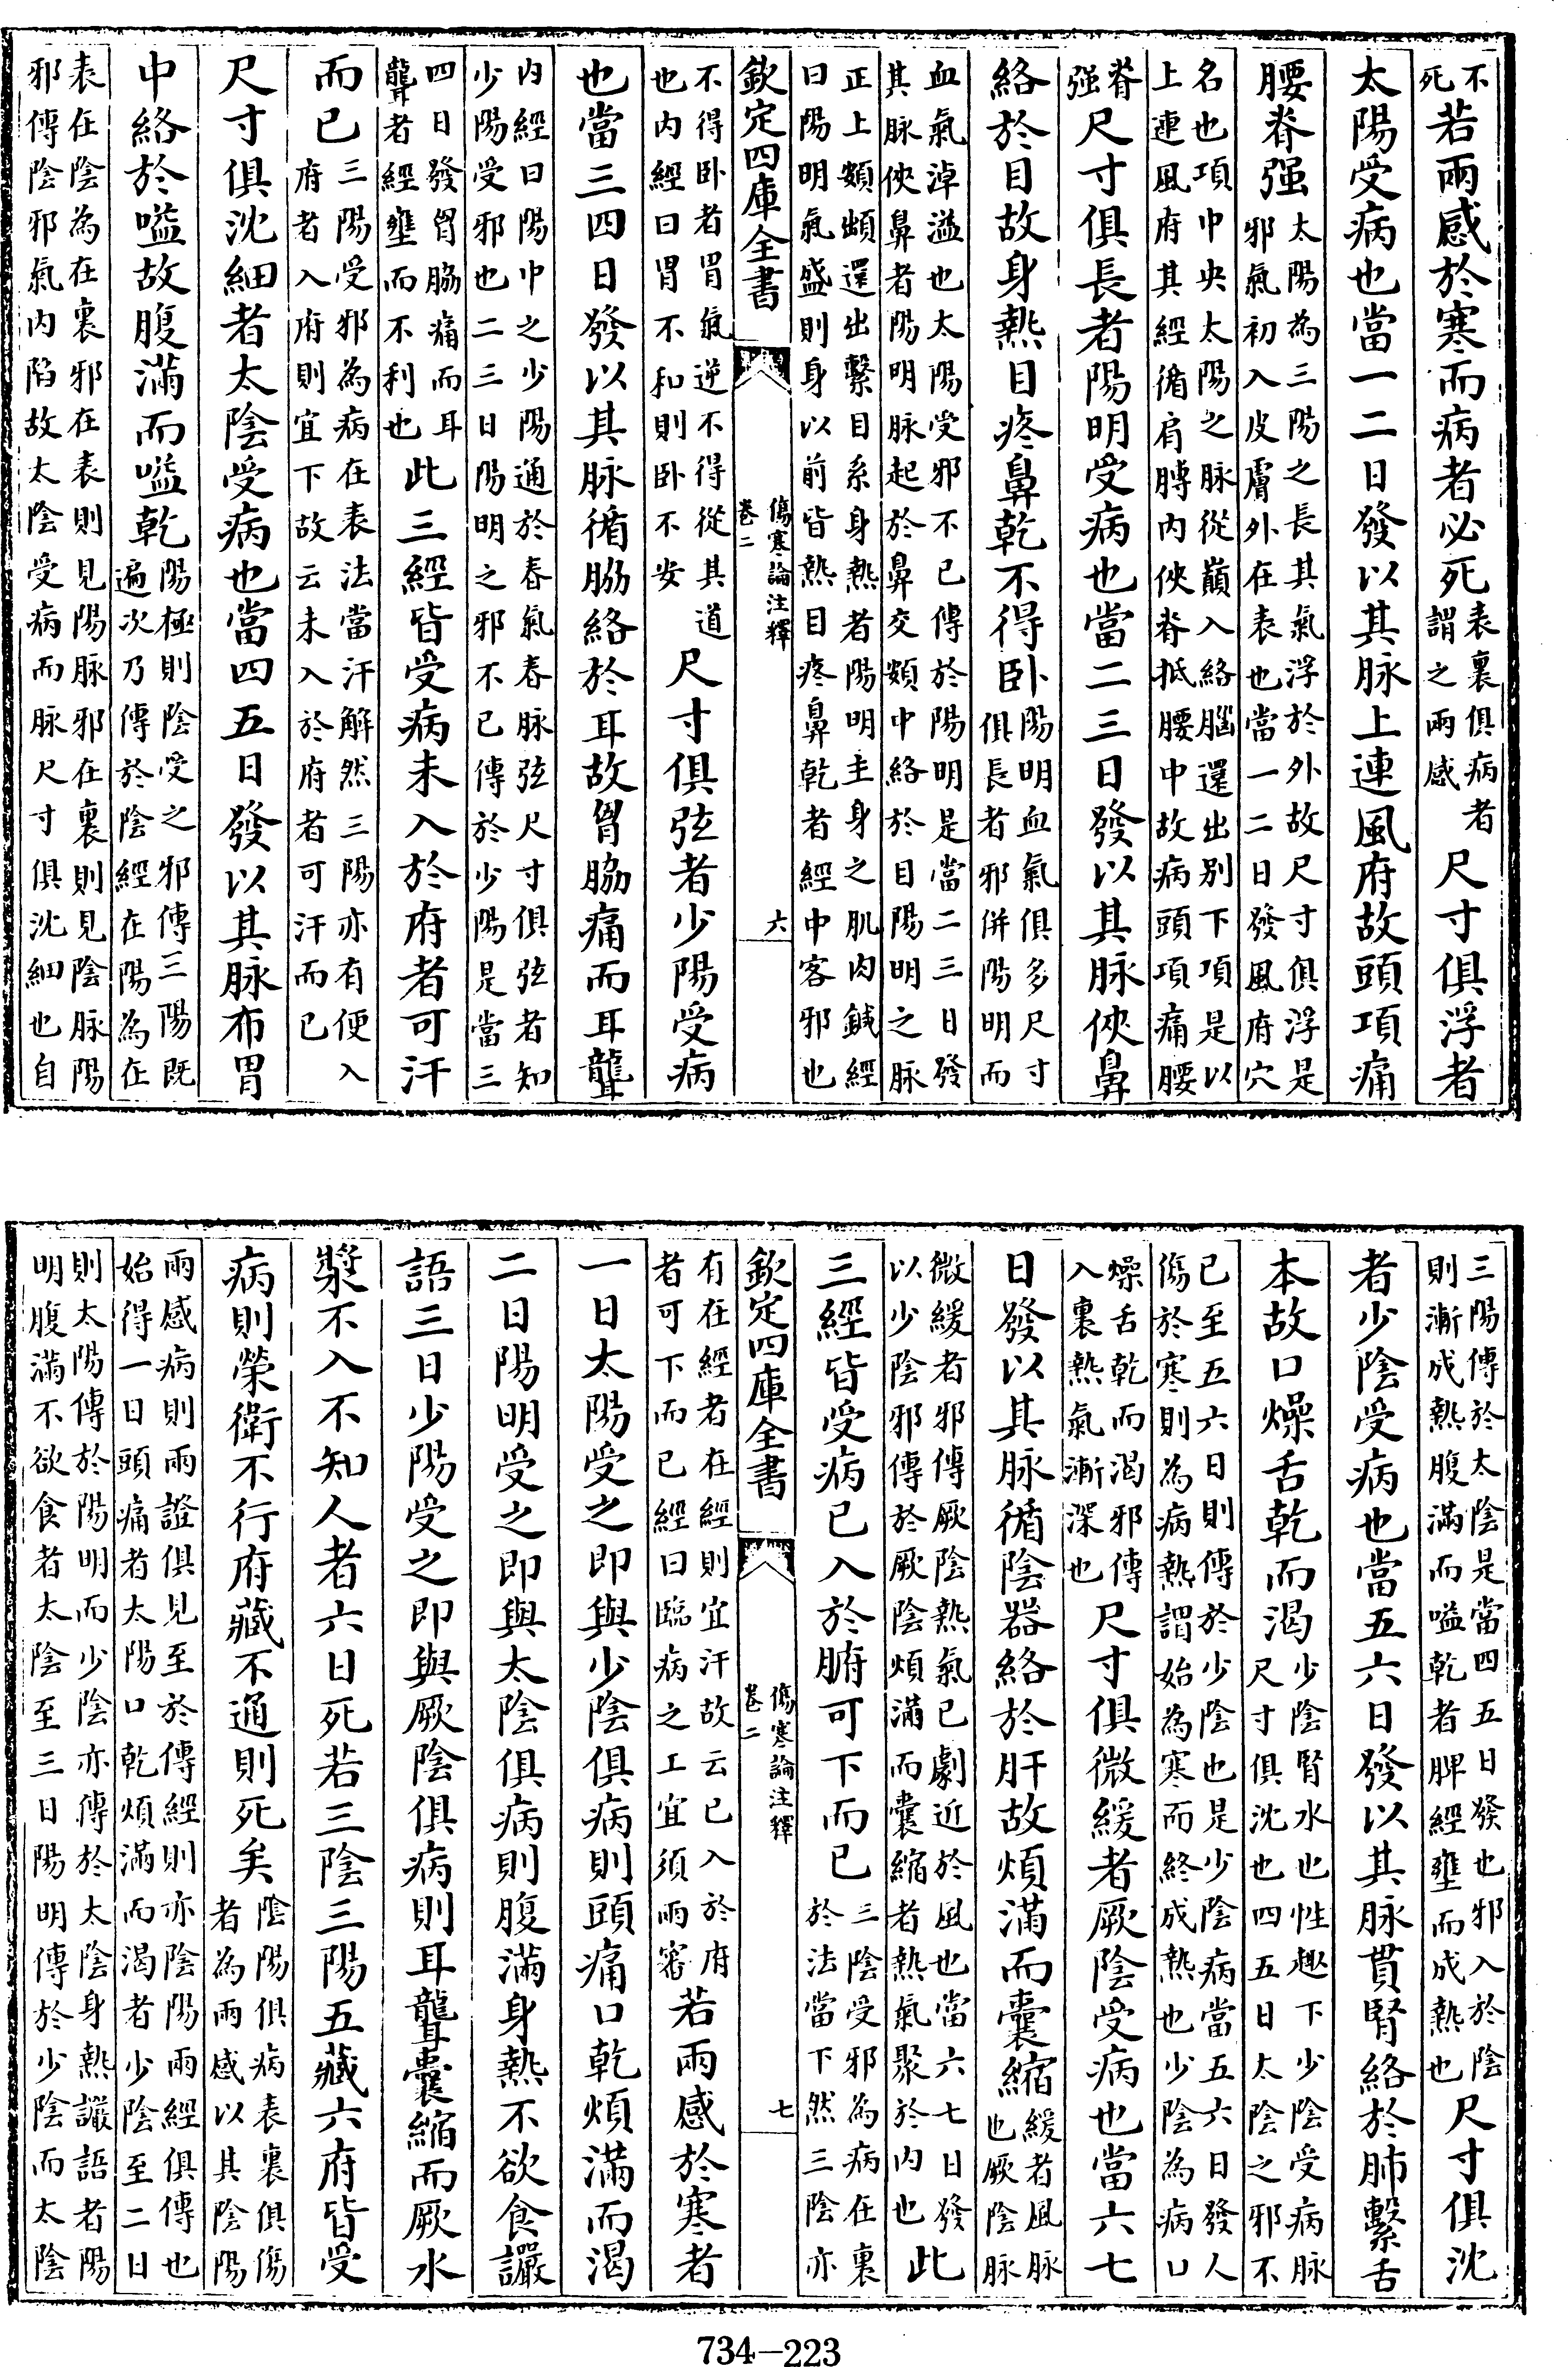 不死若兩感於寒而病者必死表裏俱病者謂之兩感尺寸俱浮者
太陽受病也當一二日發以其脉上連風府故頭項痛
腰脊强太陽為三陽之長其氣浮於外故尺寸俱浮是邪氣初入皮膚外在表也當一二日發風府穴
名也項中央太陽之脉從巔入絡腦還出别下項是以上連風府其經循肩膊内俠脊抵腰中故病頭項痛腰
脊强尺寸俱長者陽明受病也當二三日發以其脉俠鼻
絡於目故身熱目疼鼻乾不得卧陽明血氣俱多尺寸俱長者邪併陽明而
血氣淖溢也太陽受邪不已傳於陽明是當二三日發其脉俠鼻者陽明脉起於鼻交頞中絡於目陽明之脉
正上頞䪼還出繫目系身熱者陽明主身之肌肉鍼經曰陽明氣盛則身以前皆熱目疼鼻乾者經中客邪也
欽定四庫全書 傷寒論注釋 卷二 六
不得卧者胃氣逆不得從其道也内經曰胃不和則卧不安尺寸俱弦者少陽受病
也當三四日發以其脉循脇絡於耳故胷脇痛而耳聾
内經曰陽中之少陽通於春氣春脉弦尺寸俱弦者知少陽受邪也二三日陽明之邪不已傳於少陽是當三
四日發胷脇痛而耳聾者經壅而不利也此三經皆受病未入於府者可汗
而已三陽受邪為病在表法當汗解然三陽亦有便入府者入府則宜下故云未入於府者可汗而已
尺寸俱沈細者太陰受病也當四五日發以其脉布胃
中絡於嗌故腹滿而嗌乾陽極則陰受之邪傳三陽既遍次乃傳於陰經在陽為在
表在陰為在裏邪在表則見陽脉邪在裏則見陰脉陽邪傳陰邪氣内陷故太陰受病而脉尺寸俱沈細也自
三陽傳於太陰是當四五日發也邪入於陰則漸成熱腹滿而嗌乾者脾經壅而成熱也尺寸俱沈
者少陰受病也當五六日發以其脉貫腎絡於肺繫舌
本故口燥舌乾而渴少陰腎水也性趣下少陰受病脉尺寸俱沈也四五日太陰之邪不
已至五六日則傳於少陰也是少陰病當五六日發人傷於寒則為病熱謂始為寒而終成熱也少陰為病口
燥舌乾而渴邪傳入裏熱氣漸深也尺寸俱微緩者厥陰受病也當六七
日發以其脉循陰器絡於肝故煩滿而囊縮緩者風脉也厥陰脉
微緩者邪傳厥陰熱氣已劇近於風也當六七日發以少陰邪傳於厥陰煩滿而囊縮者熱氣聚於内也此
三經皆受病已入於腑可下而已三陰受邪為病在裏於法當下然三陰亦
欽定四庫全書 傷寒論注釋 卷二 七
有在經者在經則宜汗故云已入於府者可下而已經曰臨病之工宜須兩審若兩感於寒者
一日太陽受之即與少陰俱病則頭痛口乾煩滿而渴
二日陽明受之即與太陰俱病則腹滿身熱不欲食讝
語三日少陽受之即與厥陰俱病則耳聾囊縮而厥水
漿不入不知人者六日死若三陰三陽五藏六府皆受
病則榮衛不行府藏不通則死矣陰陽俱病表裏俱傷者為兩感以其陰陽
兩感病則兩證俱見至於傳經則亦陰陽兩經俱傳也始得一日頭痛者太陽口乾煩滿而渴者少陰至二日
則太陽傳於陽明而少陰亦傳於太陰身熱讝語者陽明腹滿不欲食者太陰至三日陽明傳於少陰而太陰
734—223